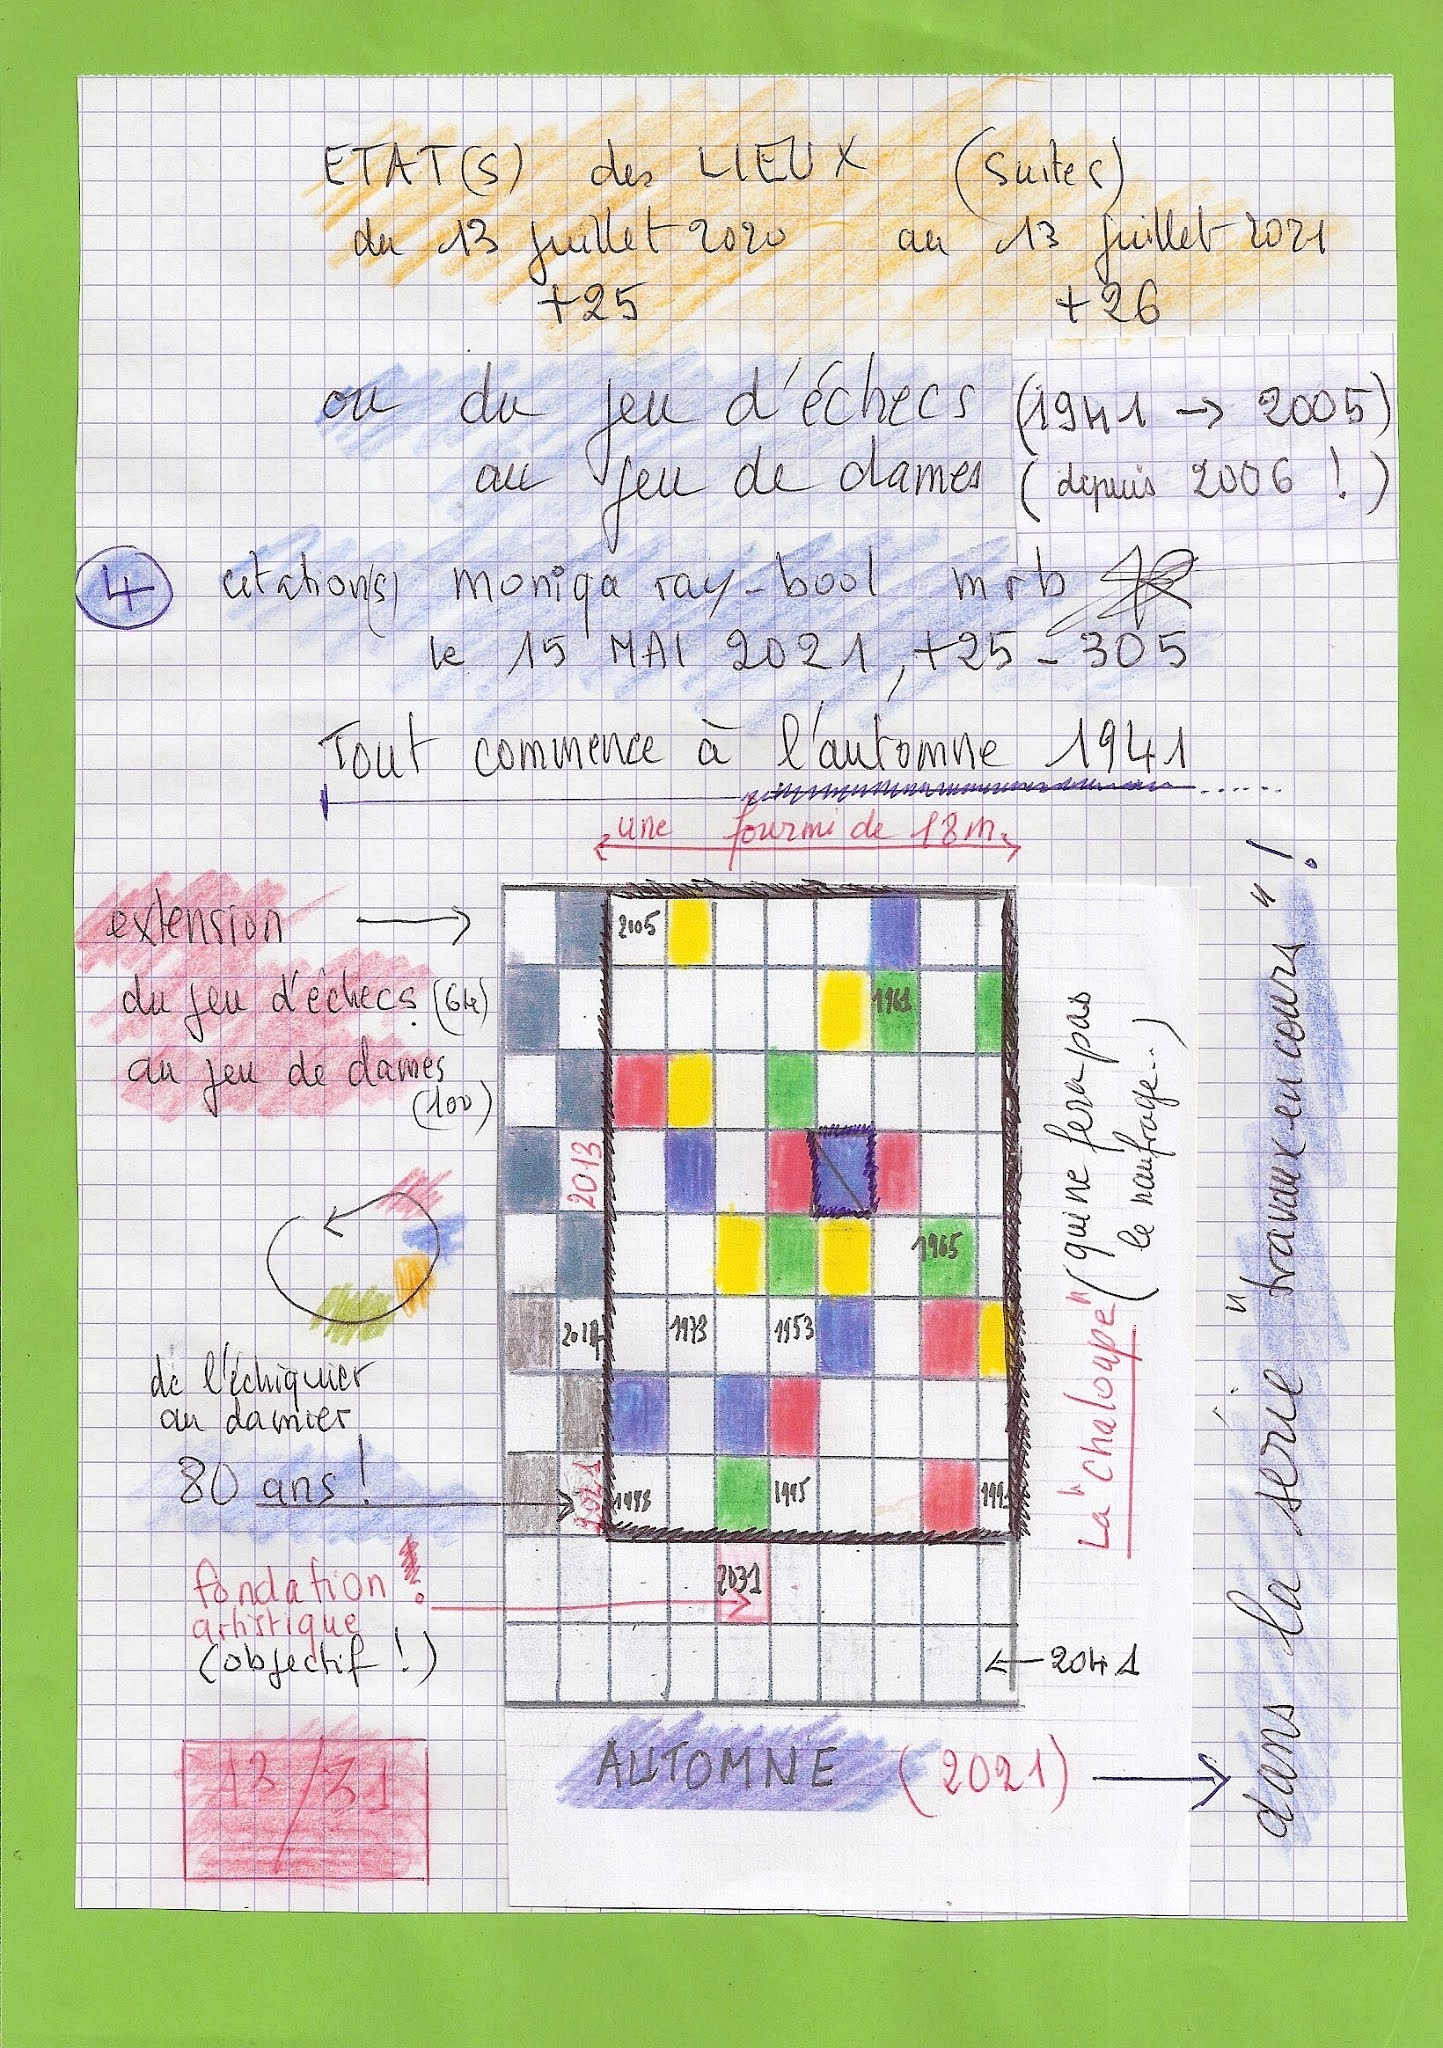 ETAT(S) des LIEUX (suites)
du 13 juillet 2020 au 13 juillet 2021
+25 +26
ou du jeu d'échecs (1941 → 2005)
au jeu de dames (depuis 2006 !)
4 citation(s) moniqa ray-bool mrb
le 15 MAI 2021, +25 - 305
Tout commence à l'automne 1941
une fourmi de 18 m.
extension →
du jeu d'échecs (64)
au jeu de dames
(100)
de l'échiquier
au damier
80 ans !
fondation !
artistique
(objectif !)
13/31
2005
1961
2013
1965
2017 1973 1953
2021 1995
2031
← 2041
La "chaloupe" (qui ne fera pas
le naufrage..)
AUTOMNE (2021) →
dans la série "travaux en cours" !